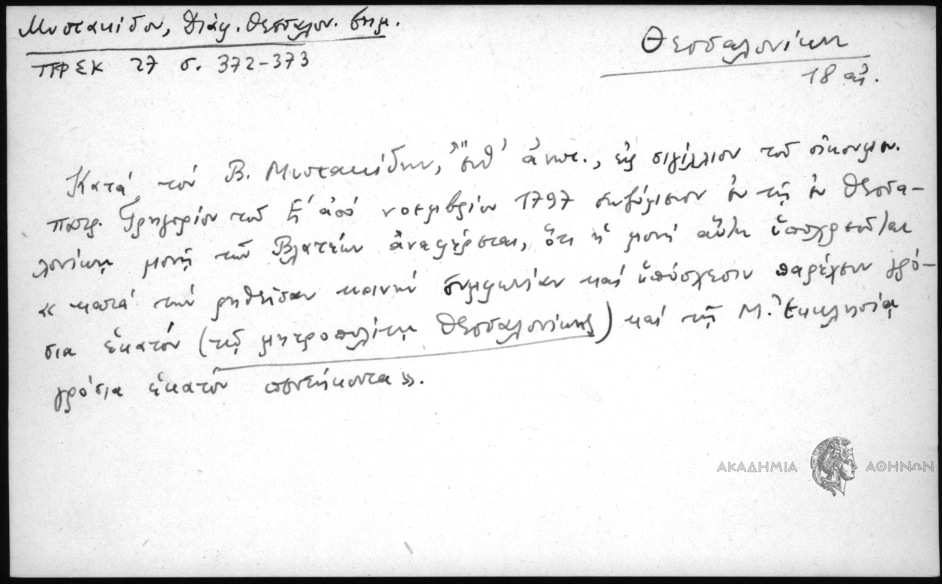 Μυστακίδου, Διάφ. Θεσσαλον. σημ.
ΓΡ 27 σ. 372-373
Θεσσαλονίκη
18 αἰ.
Κατά τόν Β. Μυστακίδην, ἔνθ' ἀνωτ., εἰς σιγίλλιον τοῦ οἰκουμεν.
πατρ. Γρηγορίου τοῦ Ε΄ ἀπό νοεμβρίου 1797 ἐν τῇ ἐν Θεσσα-
λονίκῃ μονῇ τῶν Βλατέων ἀναφέρεται, ὅτι ἡ μονή αὕτη ὑποχρεοῦται
« κατά τήν ρηθεῖσαν κοινήν συμφωνίαν καί ὑπόσχεσιν παρέχειν γρό-
σια ἑκατόν (τῷ μητροπολίτῃ Θεσσαλονίκης) καί τῇ Μ. Ἐκκλησίᾳ
γρόσια ἑκατόν πεντήκοντα».
ΑΚΑΔΗΜΙΑ ΑΘΗΝΩΝ